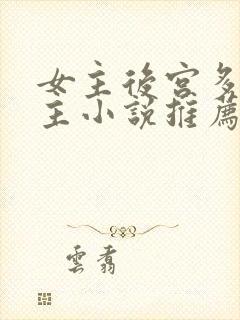 女主後宮多
主小說推薦
雲翥